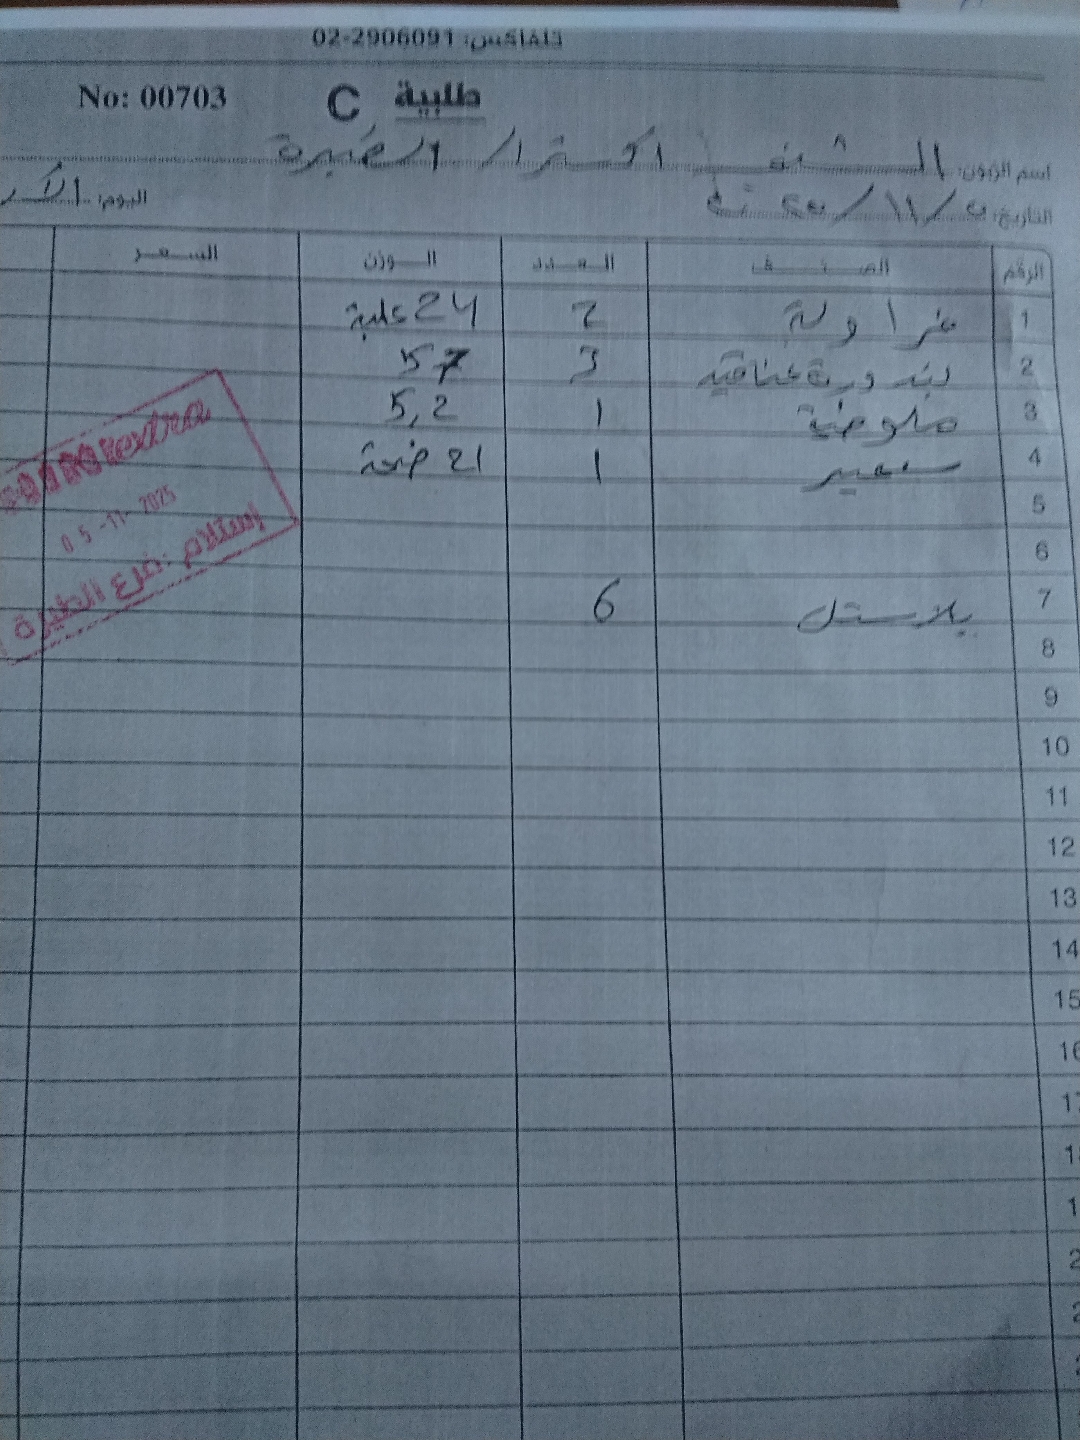 تلفاكس: 02-2906091
No: 00703 C طلبية
اسم الزبون: الشني اكسترا الطيرة
التاريخ: ٥/١١/ اليوم:
الرقم الصنف العدد الوزن السعر
1 فراولة 2 24 علبة
2 بندورة عناقيد 3 57
3 ملوخية 1 5,2
4 1 21
5
6
7 بلاستك 6
8
9
10
11
12
13
14
15
extra
05-11-2025
إستلام: فرع الطيرة